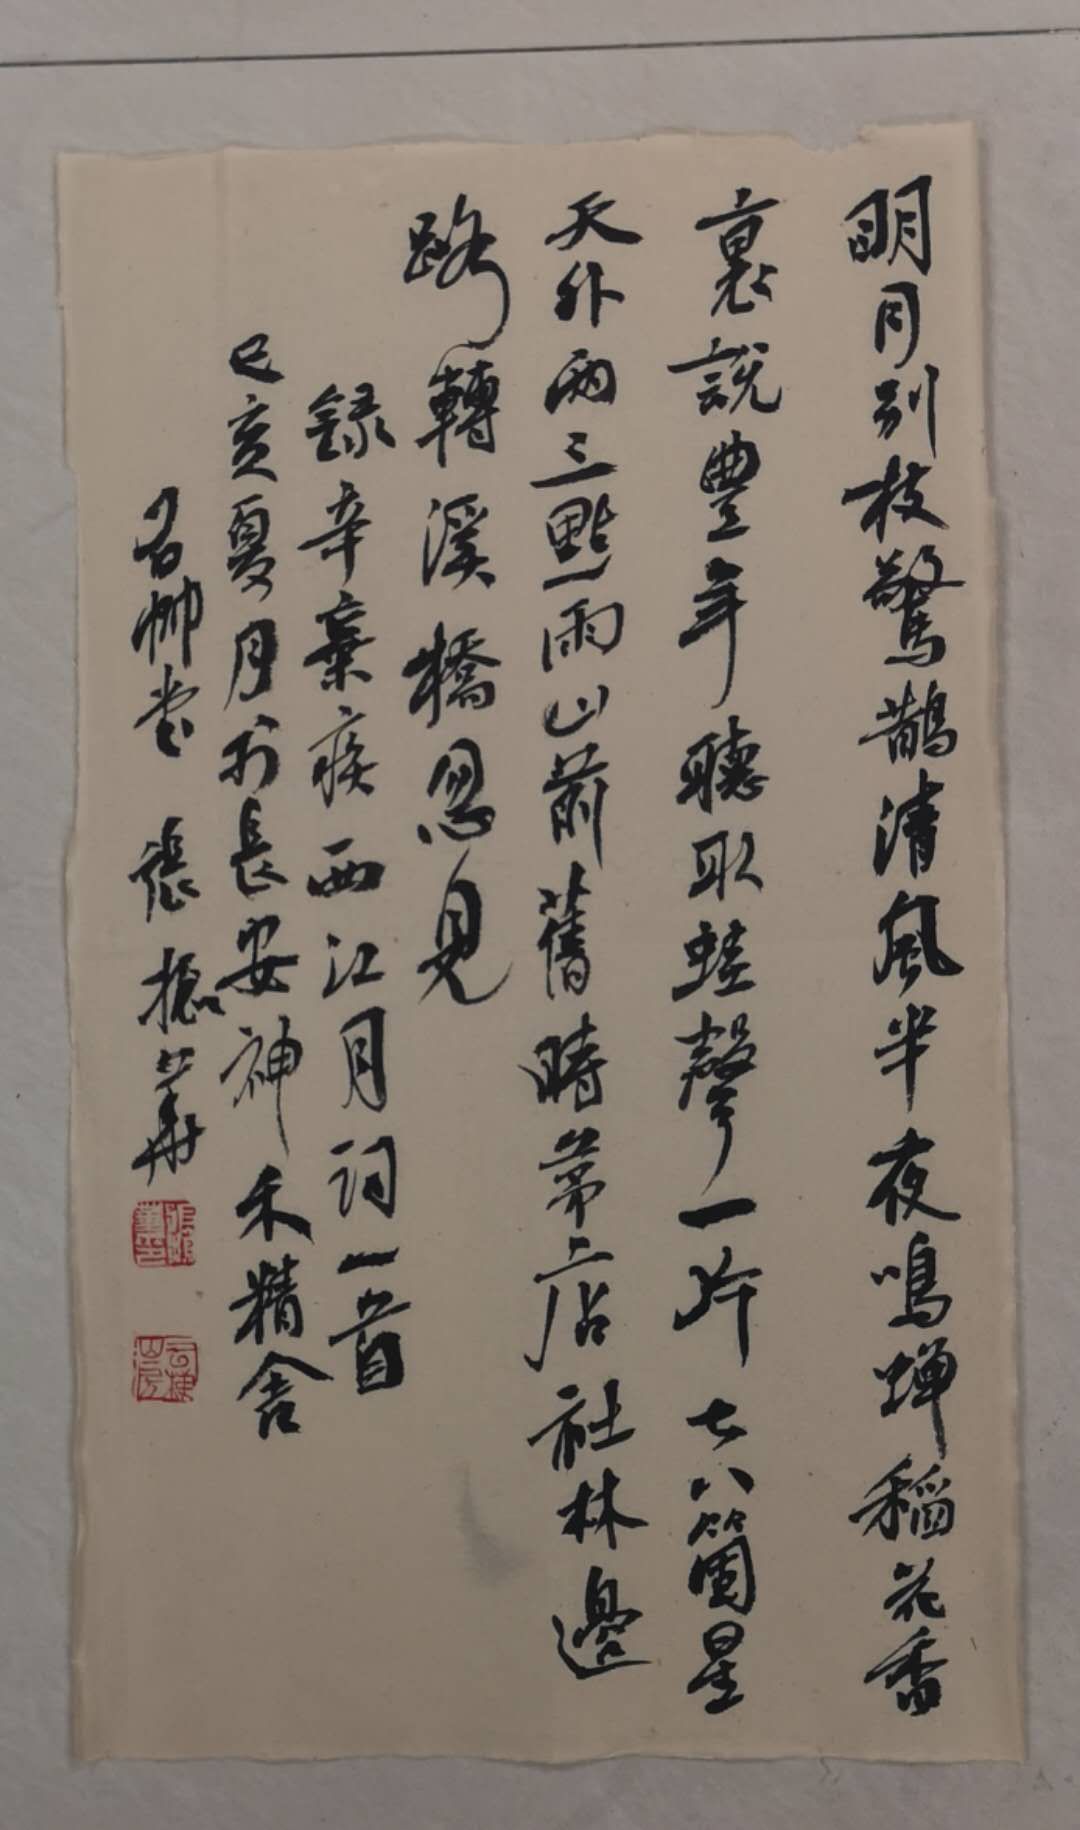 明月別枝驚鵲清風半夜鳴蟬稻花香
裏說豐年聽取蛙聲一片七八箇星
天外兩三點雨山前舊時茅店社林邊
路轉溪橋忽見
錄辛棄疾西江月詞一首
己亥夏月於長安神禾精舍
名帥堂 張 華